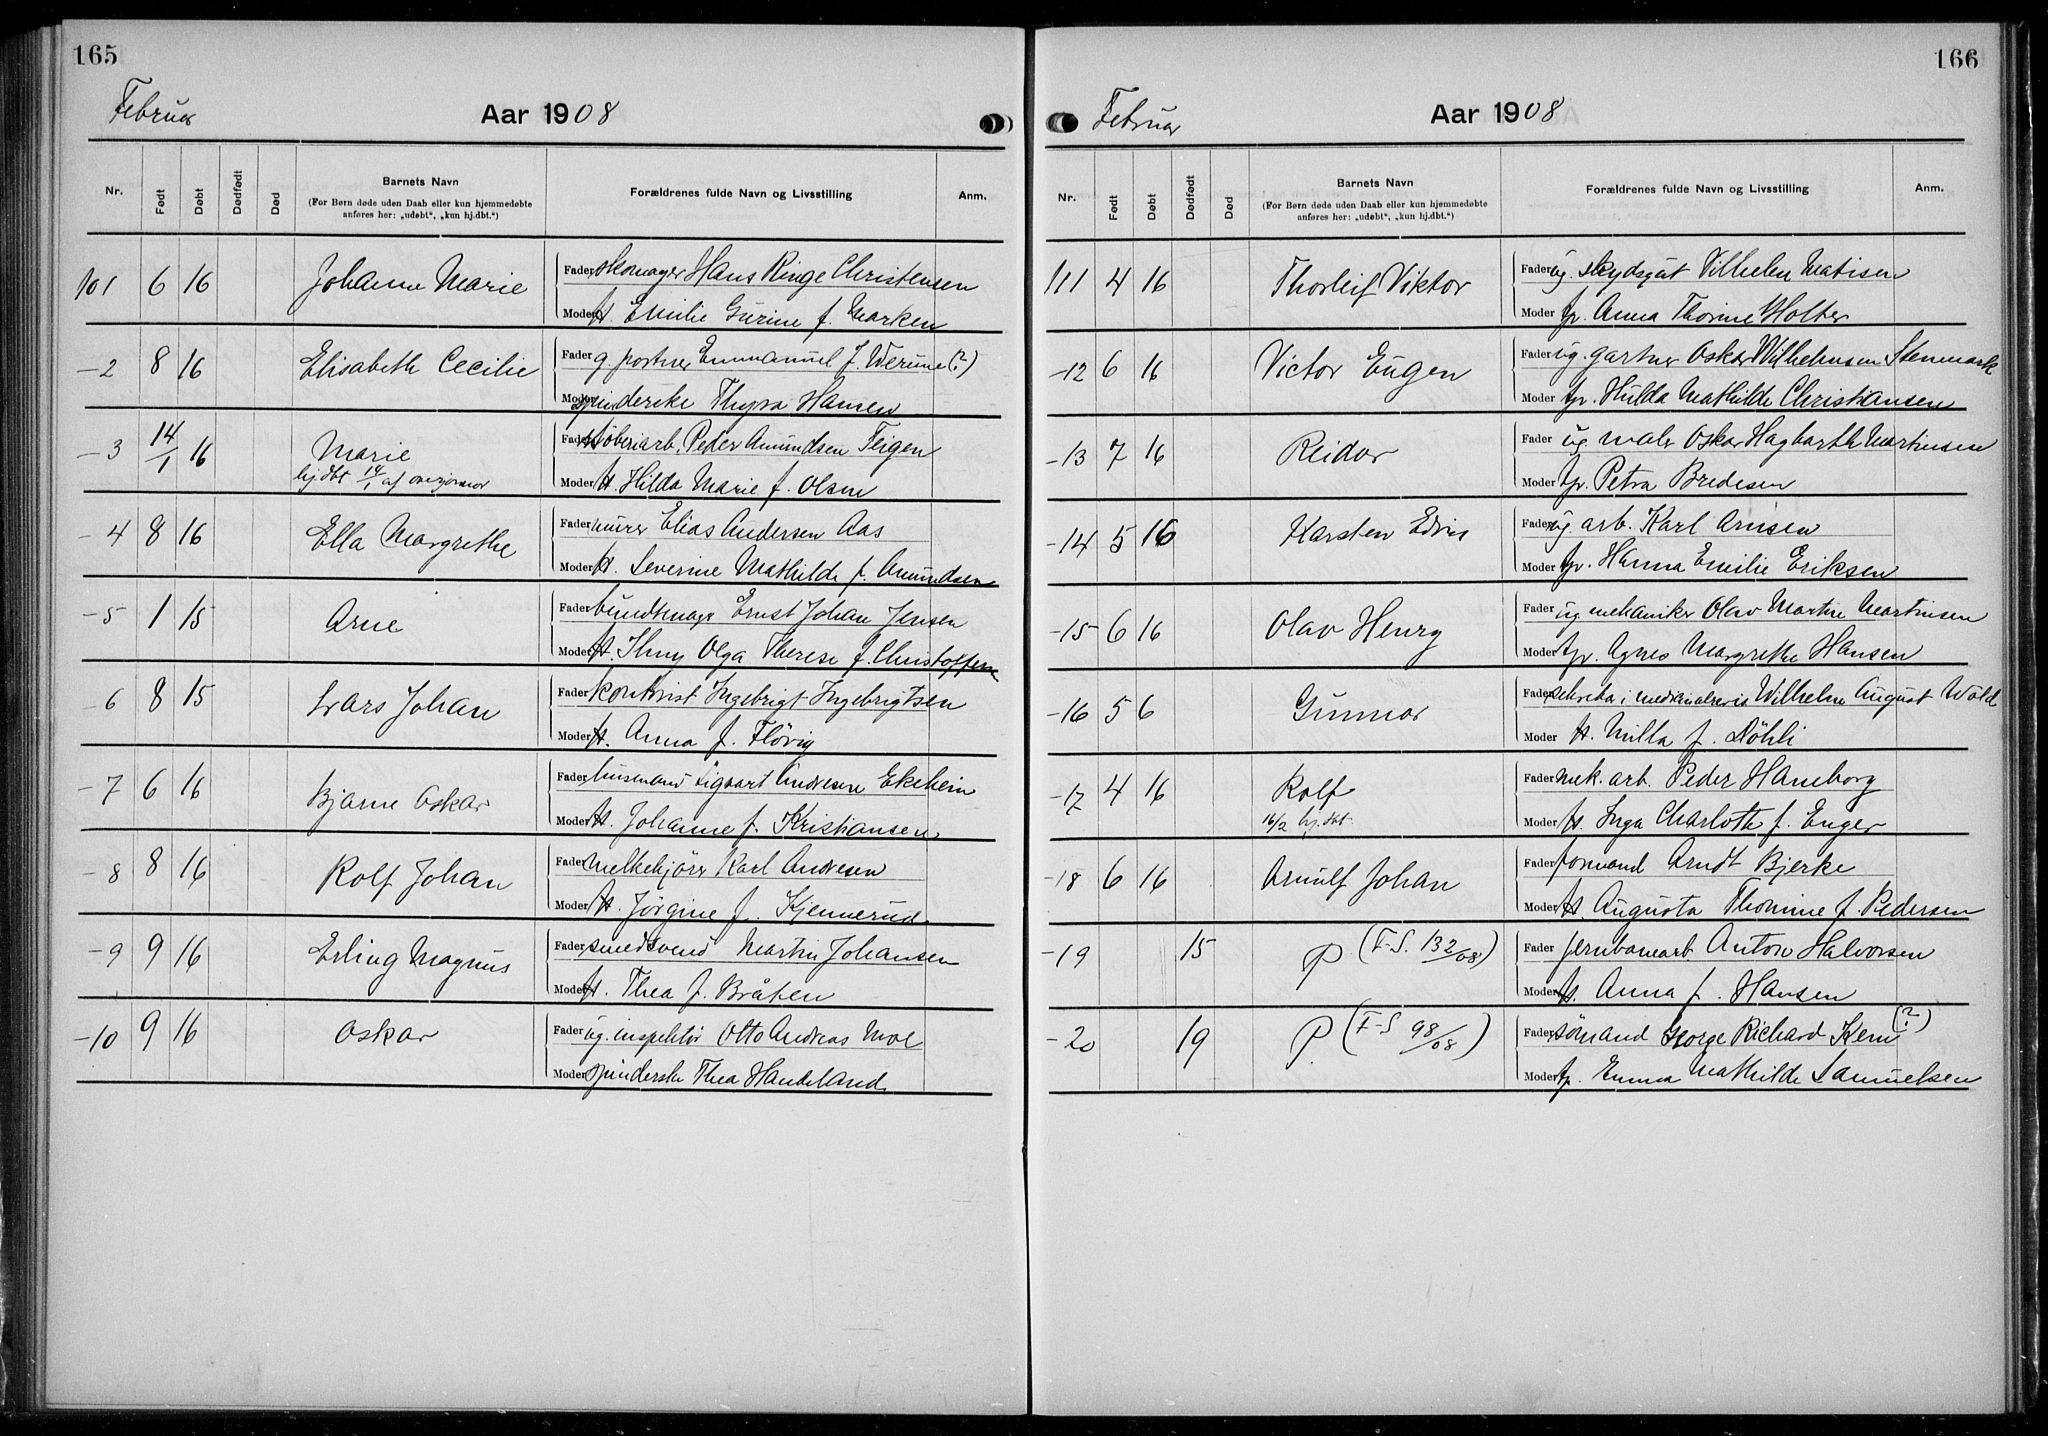 165
Februar
Aar 1908
Nr.
Født
Døbt
Dødfødt
Død
Barnets Navn
(For Børn døde uden Daab eller kun hjemmedøbte
anføres her: „udøbt“, „kun hj.dbt.“)
Forældrenes fulde Navn og Livsstilling
Anm.
101 6 16 Johanne Marie
Fader skomager Hans Ringe Christensen
Moder H. Emilie Gurine f. Marken
-2 8 16 Elisabeth Cecilie
Fader g. portner Emmanuel J. Werume (?)
Moder spinderske Thyra Hansen
-3 14/1 16 Marie
hj.dbt 14/1 af
Fader støberiarb. Peder Amundsen Teigen
Moder H. Hilda Marie f. Olsen
-4 8 16 Ella Margrethe
Fader murer Elias Andersen Aas
Moder H. Severine Mathilde f. Amundsen
-5 1 15 Arne
Fader bundtmager Ernst Johan Jensen
Moder H. Olga Therese f. Christoffersen
-6 8 15 Lars Johan
Fader kontorist Ingebrigt Ingebrigtsen
Moder H. Anna f. Fløvig
-7 6 16 Bjarne Oskar
Fader husmand Sigvart Andresen Ekeheim
Moder H. Johanne f. Kristiansen
-8 8 16 Rolf Johan
Fader melkekjører Karl Andresen
Moder H. Jørgine f. Kjennerud
-9 9 16 Erling Magnus
Fader smedsvend Martin Johansen
Moder H. Thea f. Bråten
-10 9 16 Oskar
Fader ug. inspektør Otto Andreas Moe
Moder spinderske Thea Handeland
166
Februar
Aar 1908
Nr.
Født
Døbt
Dødfødt
Død
Barnets Navn
(For Børn døde uden Daab eller kun hjemmedøbte
anføres her: „udøbt“, „kun hj.dbt.“)
Forældrenes fulde Navn og Livsstilling
Anm.
111 4 16 Thorleif Viktor
Fader ug. skydsgut Vilhelm Matisen
Moder tp. Anna Thorine Holter
-12 6 16 Victor Eugen
Fader ug. gartner Oskar Wilhelmsen Stenmark
Moder tp. Hulda Mathilde Christiansen
-13 7 16 Reidar
Fader ug. maler Oskar Hagbarth Martinsen
Moder tp. Petra Bredesen
-14 5 16 Karsten Edvin
Fader ug. arb. Karl Arnsen
Moder tp. Hanna Emilie Eriksen
-15 6 16 Olav Henry
Fader ug. mekaniker Olav Martin Martinsen
Moder tp. Agnes Margrethe Hansen
-16 5 6 Gunnar
Fader sekretær i Wilhelm August Wold
Moder H. Milla f. Døhli
-17 4 16 Rolf
16/2 hj. dbt.
Fader mek. arb. Peder Haneborg
Moder H. Inga Charlotte f. Enger
-18 6 16 Arnulf Johan
Fader formand Arndt Bjerke
Moder H. Augusta Thomine f. Pedersen
-19 15 P (F-S. 132/08)
Fader jernbanearb. Anton Halvorsen
Moder H. Anna f. Hansen
-20 19 P (F-S 98/08)
Fader sømand George Richard Kem (?)
Moder tp. Emma Mathilde Samuelsen